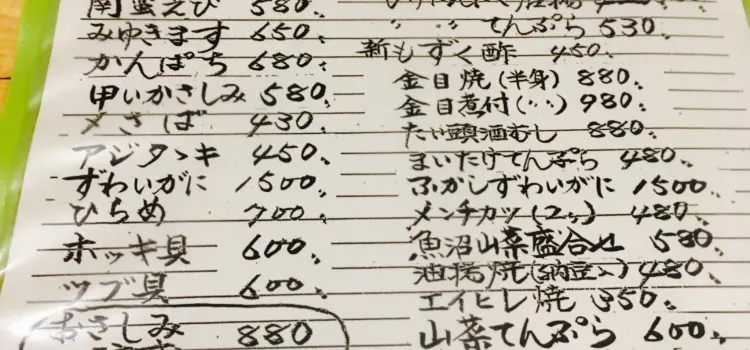 南蛮えび 580
みゆきます 650
かんぱち 680
甲いかさしみ 580
〆さば 430
アジタヽキ 450
ずわいがに 1500
ひらめ 700
ホッキ貝 600
ツブ貝 600
おさしみ 880
〃 〃 てんぷら 530
新もずく酢 450
金目焼(半身) 880
金目煮付(〃) 980
たい頭酒むし 880
まいたけてんぷら 480
ふかしずわいがに 1500
メンチカツ(2ヶ) 480
魚沼山菜盛合せ 580
油揚焼(納豆入) 480
エイヒレ焼 350
山菜てんぷら 600